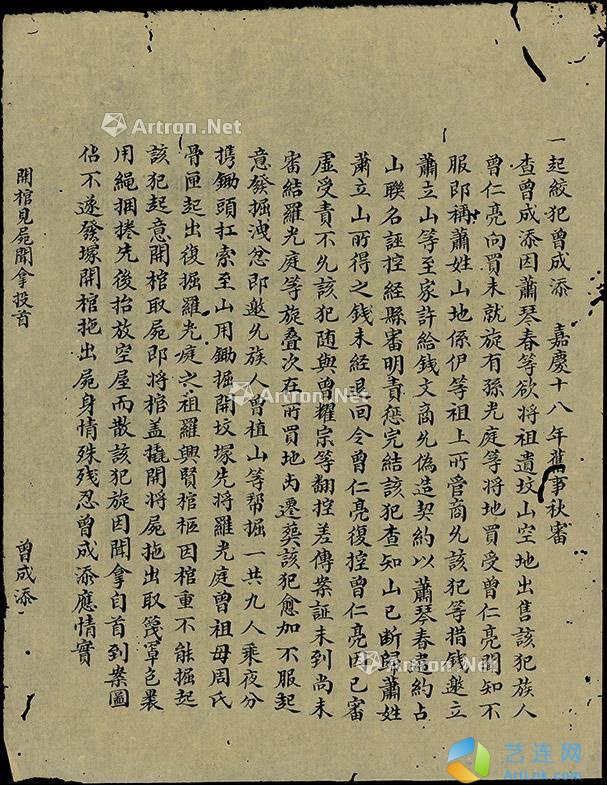 一起絞犯曾成添　嘉慶十八年舊事秋審
查曾成添因蕭琴春等欲將祖遺坟山空地出售該犯族人
曾仁亮向買未就旋有孫光庭等將地買受曾仁亮聞知不
服即稱蕭姓山地係伊等祖上所管商允該犯等措錢邀立
蕭立山等至家許給錢文商允偽造契約以蕭琴春違約占
山聯名誣控經縣審明責懲完結該犯查知山已斷歸蕭姓
蕭立山所得之錢未經退回令曾仁亮復控曾仁亮因已審
虛受責不允該犯随與曾耀宗等翻控差傳案証未到尚未
審結羅光庭等旋叠次在所買地内遷葬該犯愈加不服起
意發掘洩忿即邀允族人曾植山等帮掘一共九人乘夜分
携鋤頭扛索至山用鋤掘開坟塚先將羅光庭曾祖母周氏
骨匣起出復掘羅光庭之祖羅興賢棺柩因棺重不能掘起
該犯起意開棺取屍即將棺盖撬開將屍拖出取篾罩包裹
用繩捆捲先後抬放空屋而散該犯旋因聞拿自首到案圖
佔不遂發塚開棺拖出屍身情殊残忍曾成添應情實
開棺見屍聞拿投首　曾成添
Artron.Net
Artron.Net
Artron.Net
艺连网
ArtLink.com